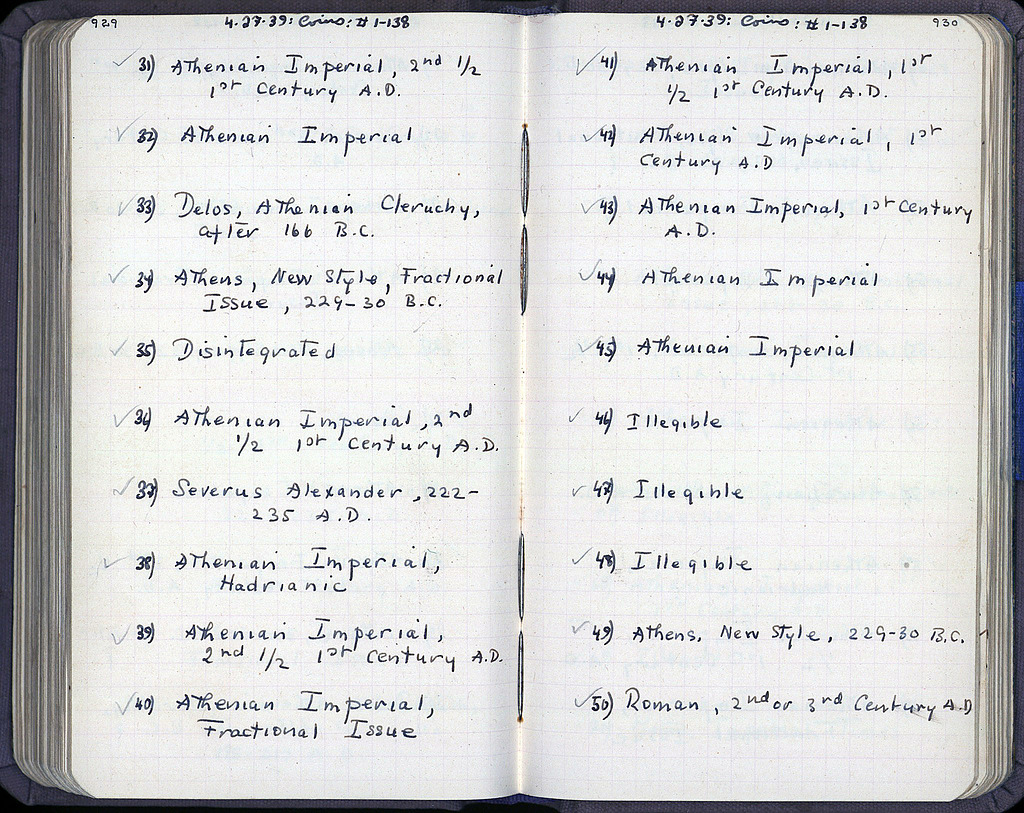 929
4.27.39: Coins: # 1-138
31) Athenian Imperial, 2nd 1/2
1st Century A.D.
32) Athenian Imperial
33) Delos, Athenian Cleruchy,
after 166 B.C.
34) Athens, New Style, Fractional
Issue, 229-30 B.C.
35) Disintegrated
36) Athenian Imperial, 2nd
1/2 1st Century A.D.
37) Severus Alexander, 222-
235 A.D.
38) Athenian Imperial,
Hadrianic
39) Athenian Imperial,
2nd 1/2 1st Century A.D.
40) Athenian Imperial,
Fractional Issue
930
4.27.39: Coins: # 1-138
41) Athenian Imperial, 1st
1/2 1st Century A.D.
42) Athenian Imperial, 1st
Century A.D
43) Athenian Imperial, 1st Century
A.D.
44) Athenian Imperial
45) Athenian Imperial
46) Illegible
47) Illegible
48) Illegible
49) Athens, New Style, 229-30 B.C.
50) Roman, 2nd or 3rd Century A.D